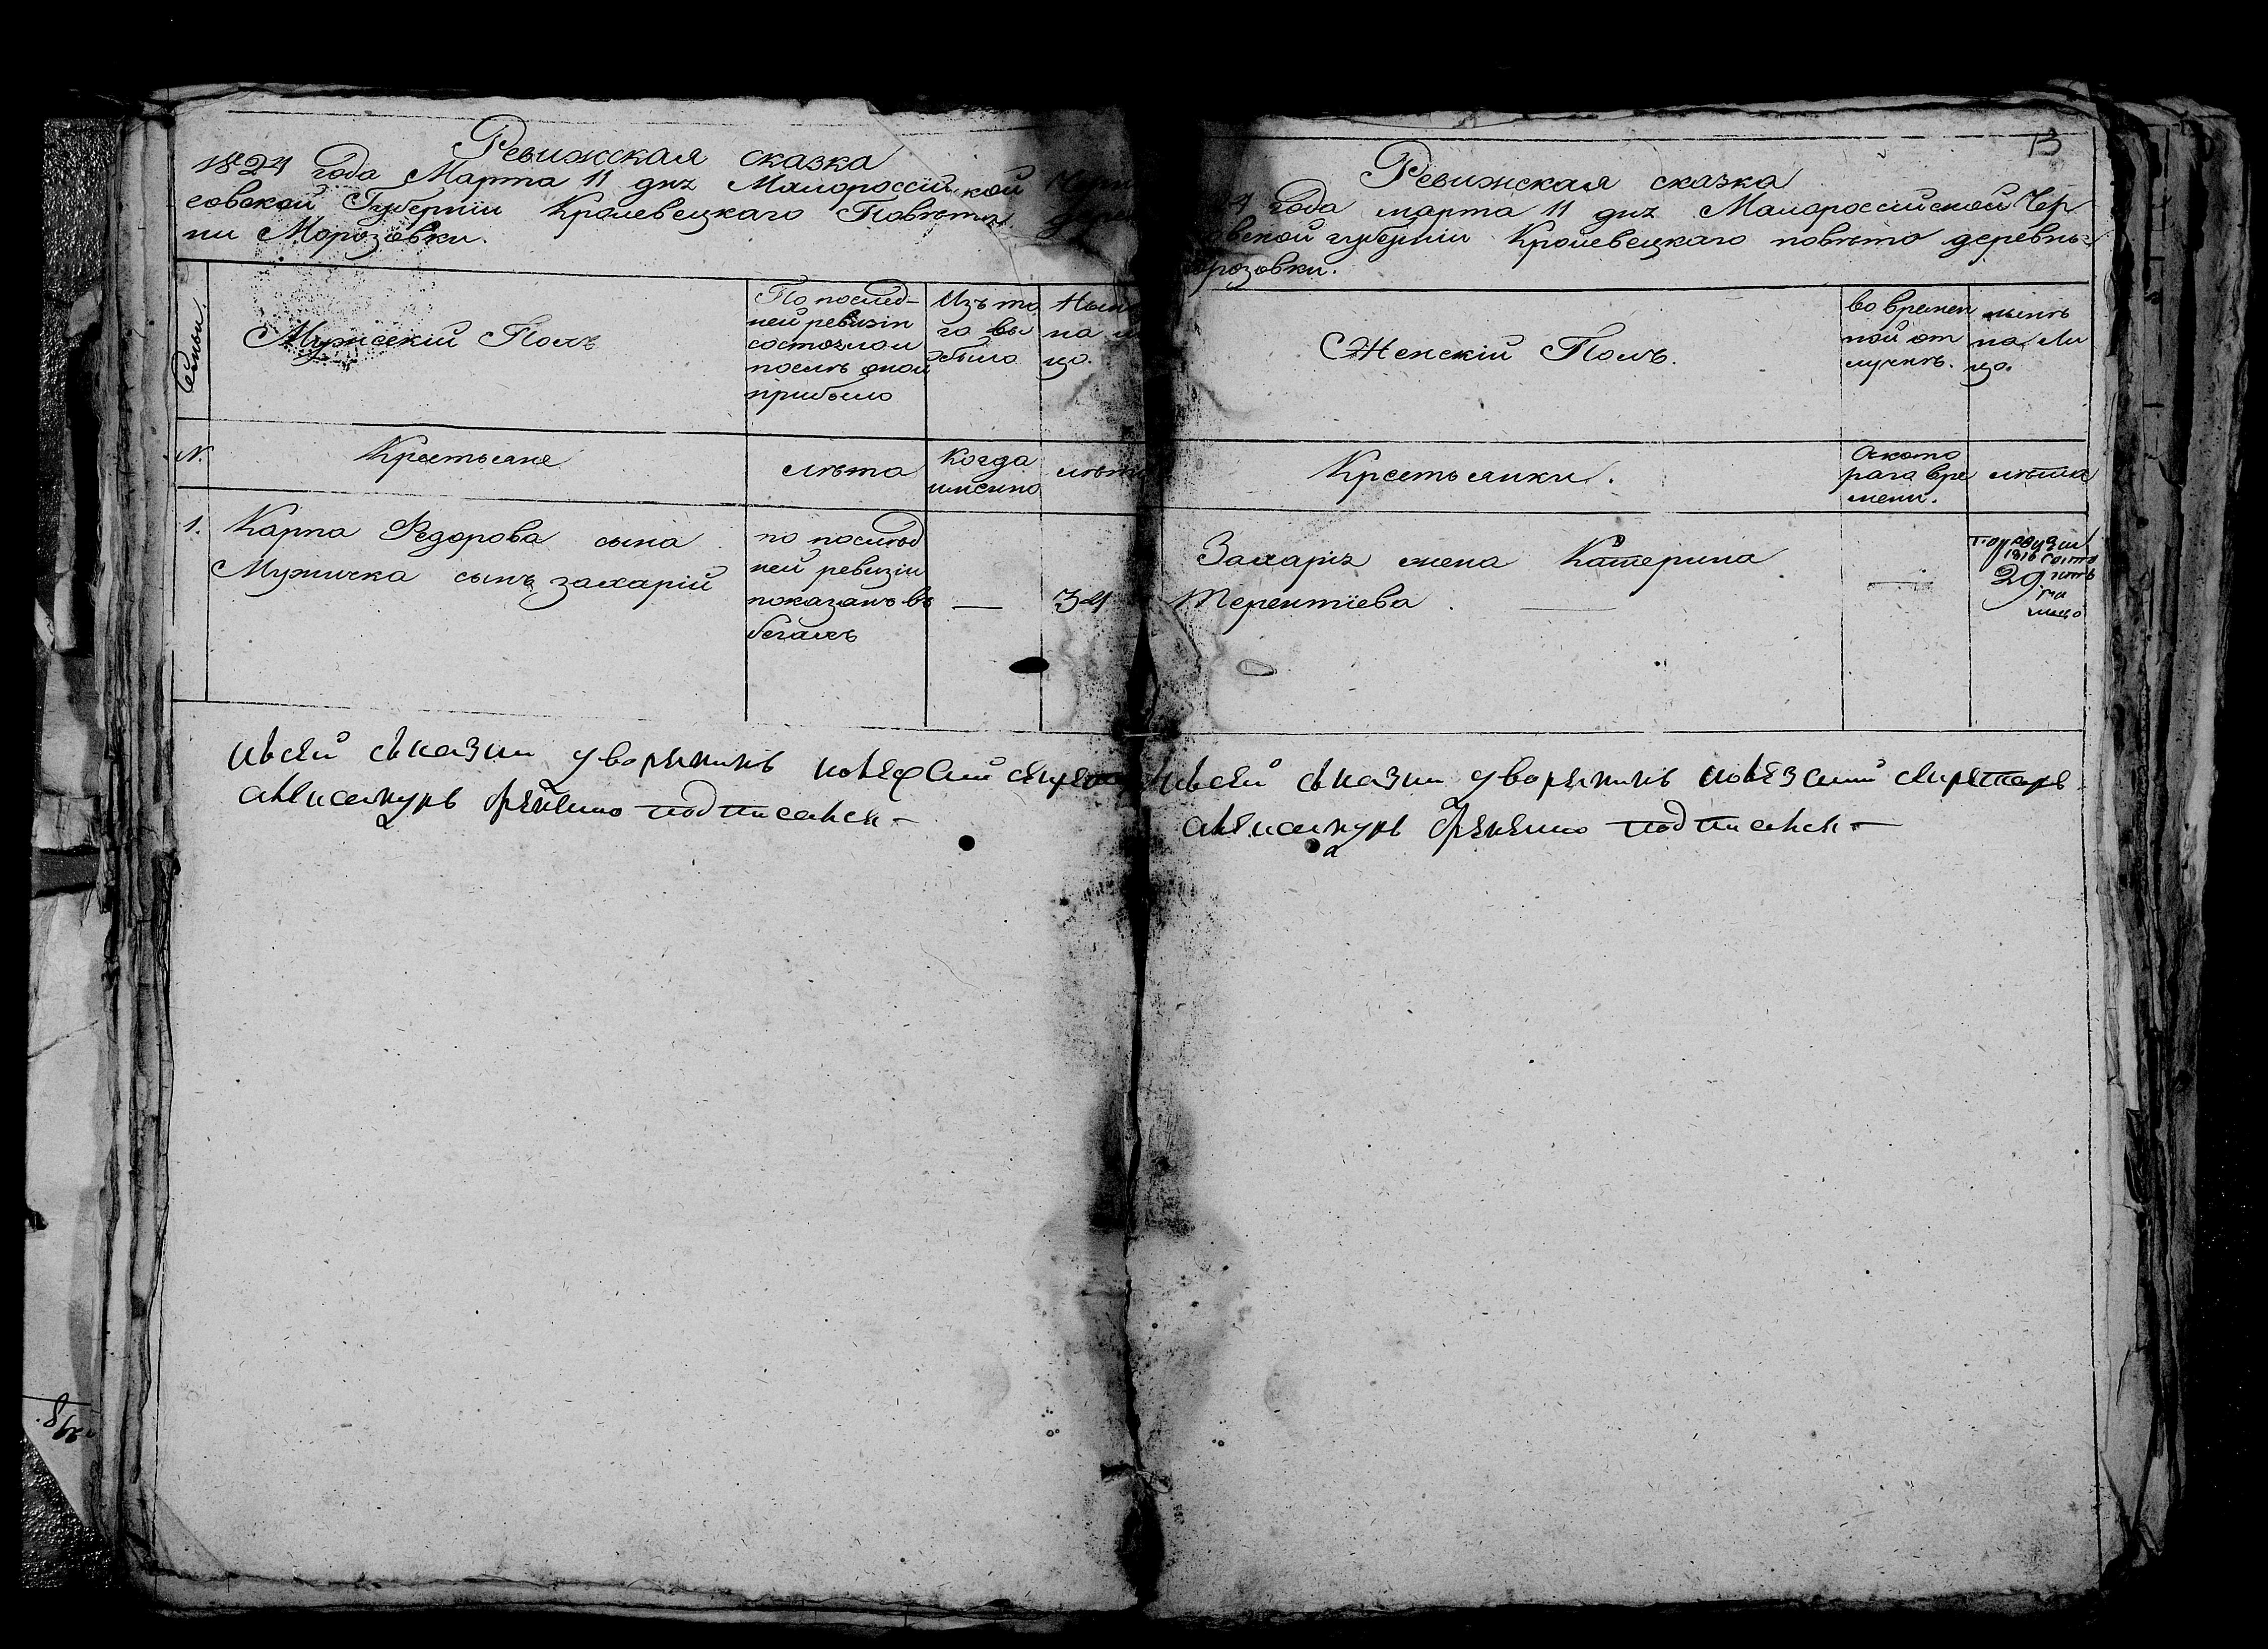 Ревижская сказка
1824 года Марта 11 дня Малороссийской Черни
говской Губернии Кролевецкаго Повѣта
ни Морозовки.
Семьи.
Мужескій Полъ
По послед-
ней ревизіи
состояло и
послѣ оной
прибыло
Изъ то
го вы
было
Ныне
на ли
цо.
N.
Крестьяне
лѣта
Когда
имѣнно
лѣта
1.
Карпа Федорова сына
Мужичка сынъ захарій
по послѣд
ней ревизіи
показанъ въ
бегахъ
—
34
къ сей сказки дворянинъ
Александръ подписался
13
Ревижская сказка
24 года марта 11 дня Малороссийской Чер
вской губерніи Кролевецкаго повѣта деревнѣ
орозовки.
Женскій Полъ.
во времен
ной от
лучкѣ.
нынѣ
на Ли
цо.
Крестьянки.
Ското
рага вре
мени.
лѣта
Захарія жена Катерина
Терентіева
—
1816
29
лицо
къ сей сказки дворянинъ секретарь
Александръ подписался